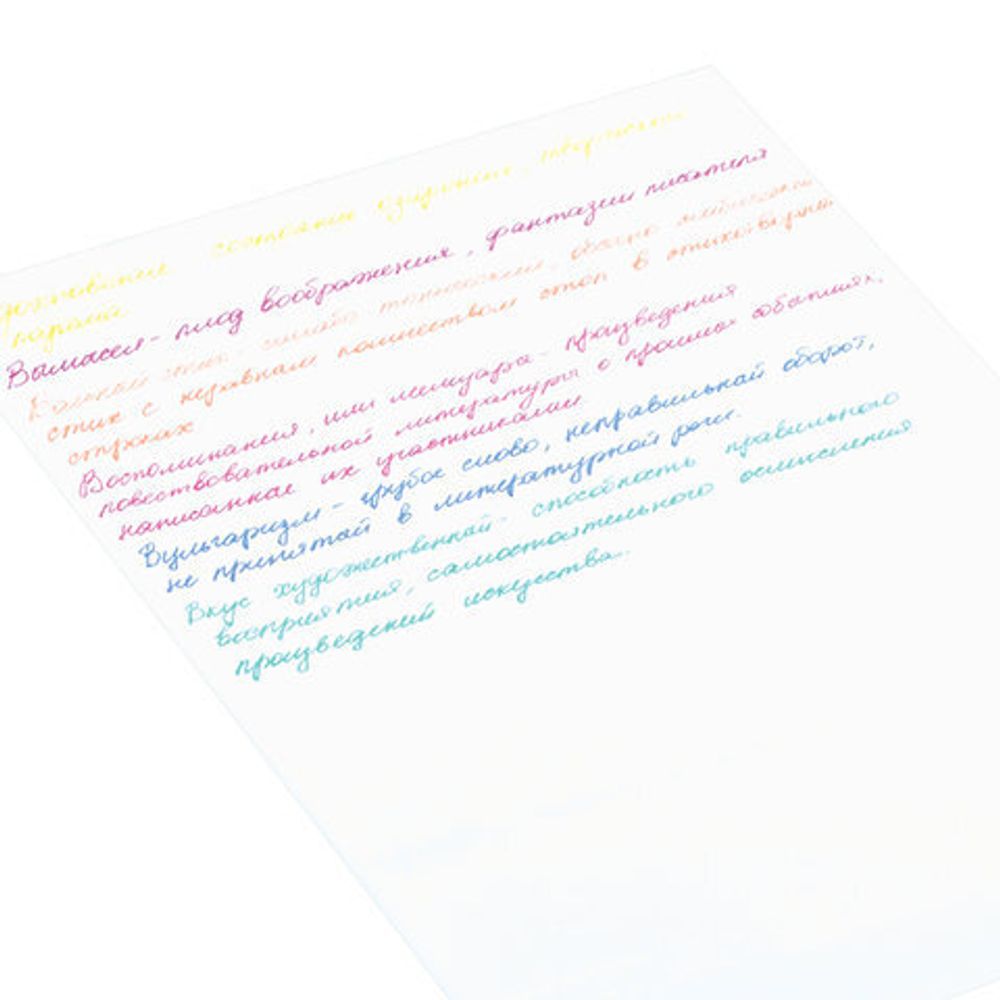 состояние озарения, творческого
Вымысел - плод воображения, фантазии писателя
Вольный стих -
стих с неравным количеством стоп в стихотворных
строках
Воспоминания, или мемуары - произведения
повествовательной литературы о прошлых событиях,
написанные их участниками
Вульгаризм - грубое слово, неправильный оборот,
не принятый в литературной речи.
Вкус художественный - способность правильного
восприятия, самостоятельного осмысления
произведений искусства...